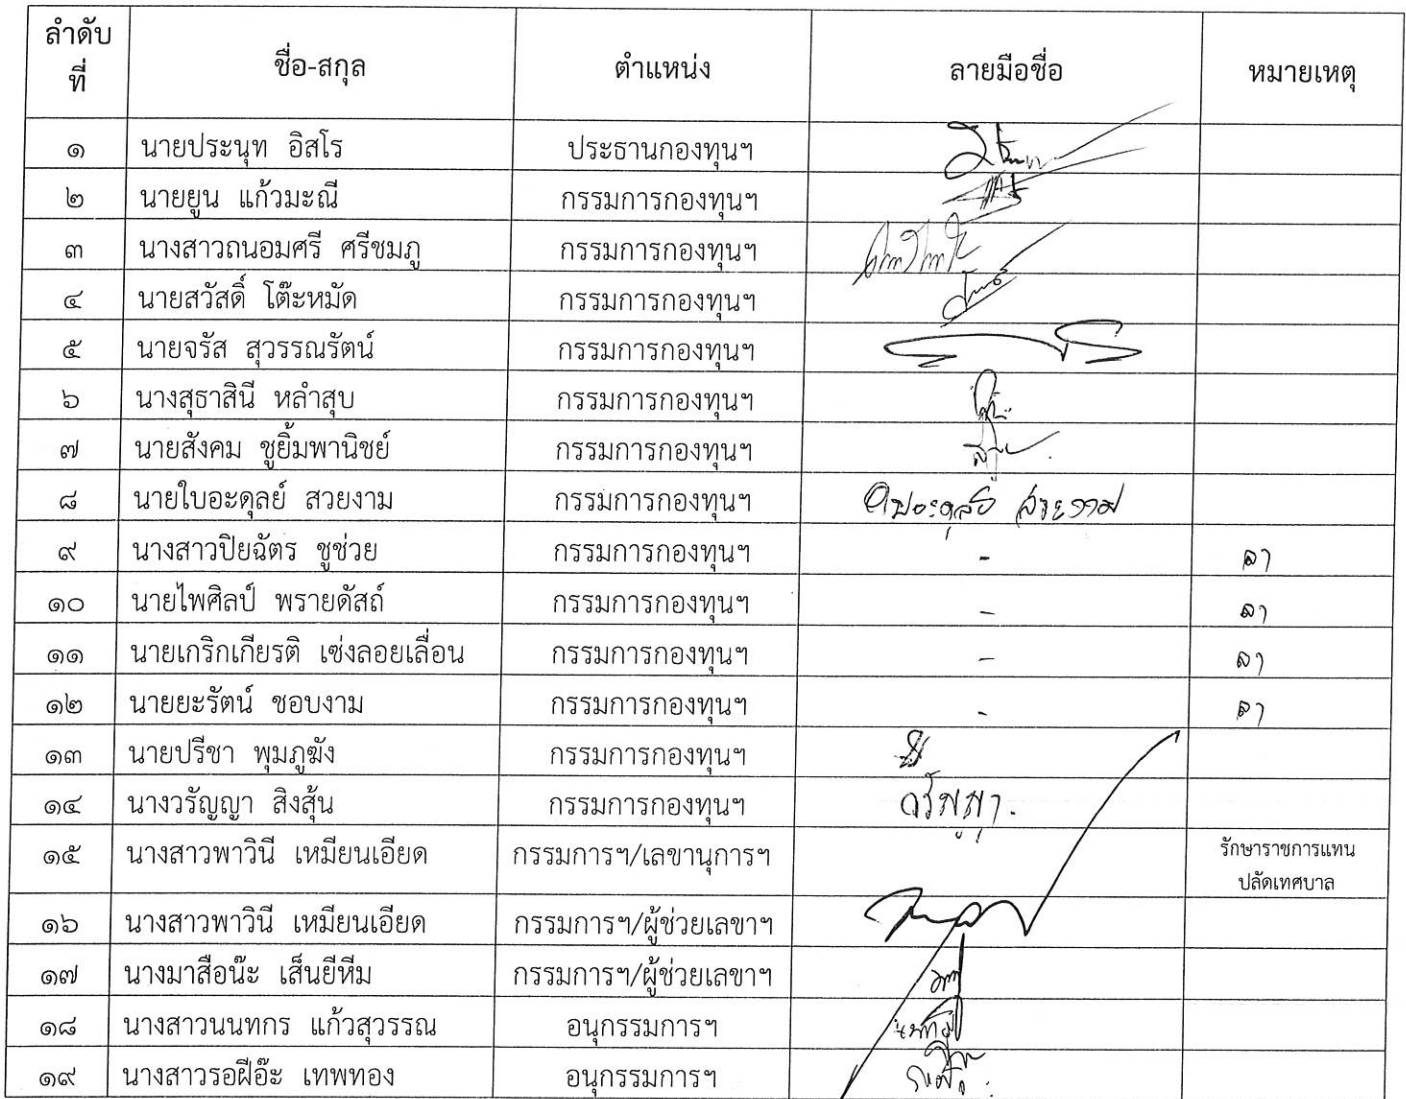 ลำดับที่ ชื่อ-สกุล ตำแหน่ง ลายมือชื่อ หมายเหตุ
๑ นายประนุท อิสโร ประธานกองทุนฯ
๒ นายยูน แก้วมะณี กรรมการกองทุนฯ
๓ นางสาวถนอมศรี ศรีชมภู กรรมการกองทุนฯ
๔ นายสวัสดิ์ โต๊ะหมัด กรรมการกองทุนฯ
๕ นายจรัส สุวรรณรัตน์ กรรมการกองทุนฯ
๖ นางสุธาสินี หลำสุบ กรรมการกองทุนฯ
๗ นายสังคม ชูยิ้มพานิชย์ กรรมการกองทุนฯ
๘ นายใบอะดุลย์ สวยงาม กรรมการกองทุนฯ ใบอะดุลย์ สวยงาม
๙ นางสาวปิยฉัตร ชูช่วย กรรมการกองทุนฯ - ลา
๑๐ นายไพศิลป์ พรายดัสถ์ กรรมการกองทุนฯ - ลา
๑๑ นายเกริกเกียรติ เซ่งลอยเลื่อน กรรมการกองทุนฯ - ลา
๑๒ นายยะรัตน์ ชอบงาม กรรมการกองทุนฯ - ลา
๑๓ นายปรีชา พุมภูฆัง กรรมการกองทุนฯ
๑๔ นางวรัญญา สิงสุ้น กรรมการกองทุนฯ วรัญญา.
๑๕ นางสาวพาวินี เหมียนเอียด กรรมการฯ/เลขานุการฯ รักษาราชการแทน
ปลัดเทศบาล
๑๖ นางสาวพาวินี เหมียนเอียด กรรมการฯ/ผู้ช่วยเลขาฯ
๑๗ นางมาสือน๊ะ เส็นยีหีม กรรมการฯ/ผู้ช่วยเลขาฯ
๑๘ นางสาวนนทกร แก้วสุวรรณ อนุกรรมการฯ
๑๙ นางสาวรอฝีอ๊ะ เทพทอง อนุกรรมการฯ